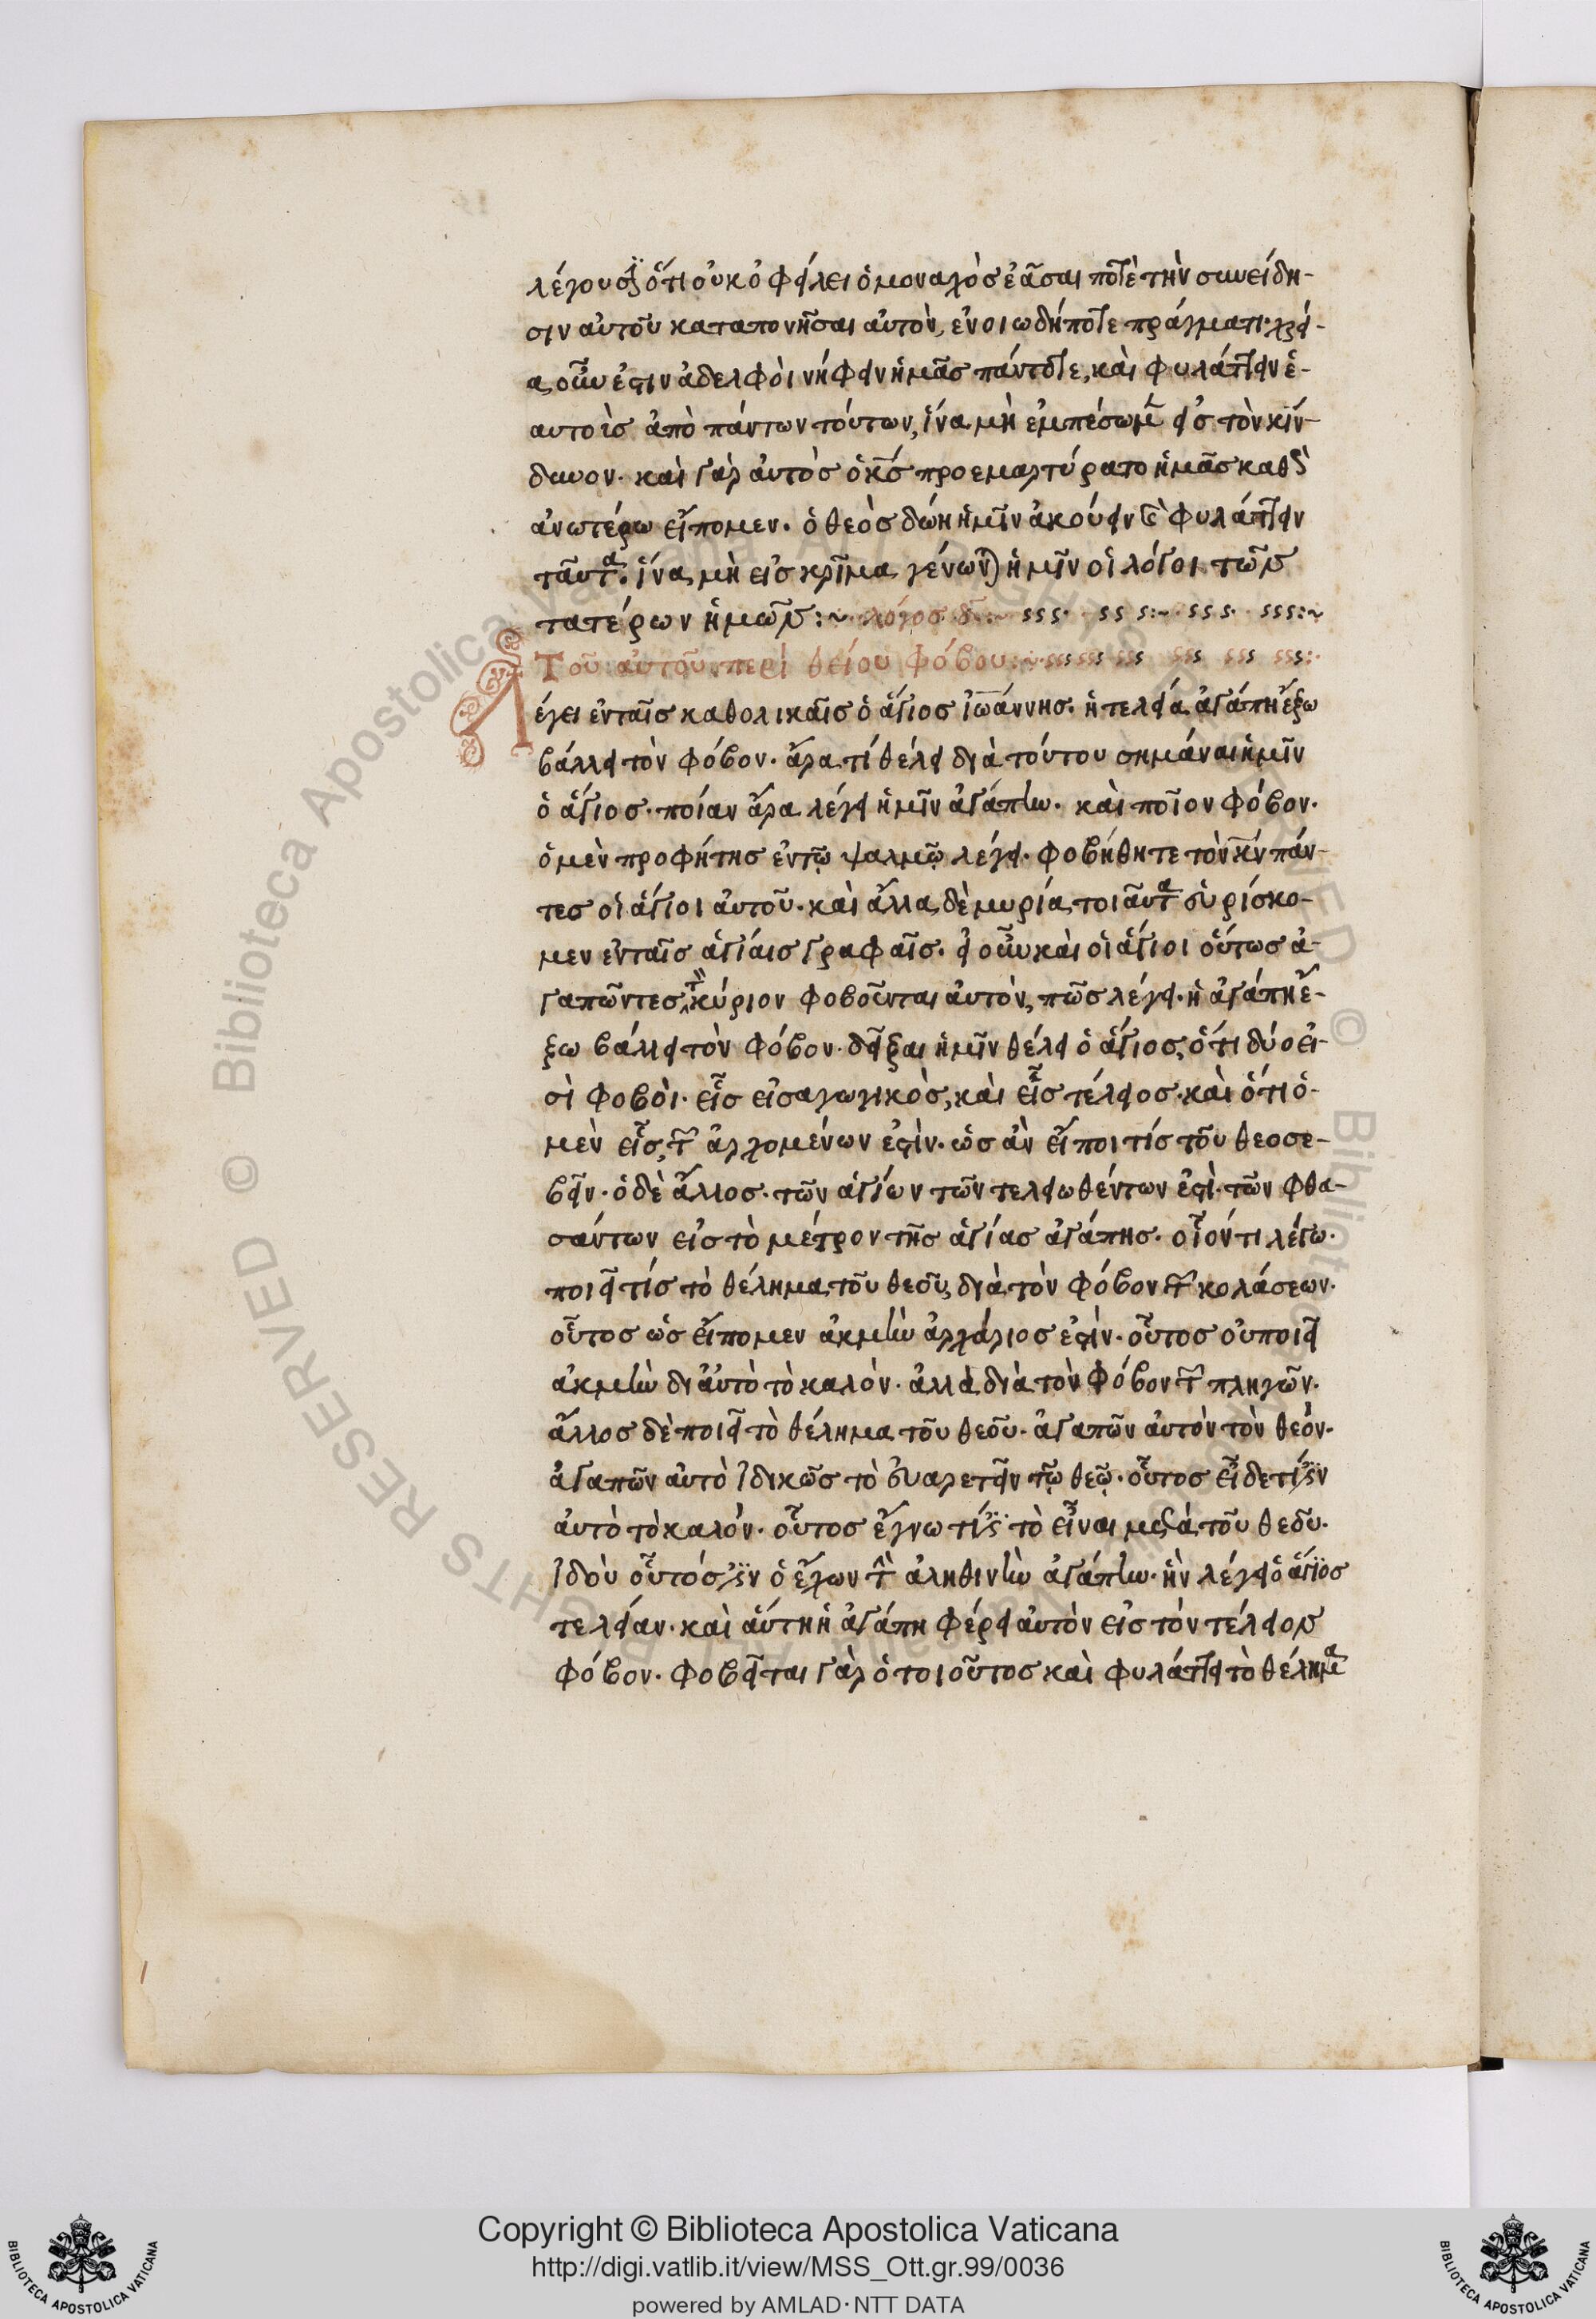 λέγουσιν ὅτι οὐκ ὀφείλει ὁ μοναχὸς ἐᾶσαι ποτὲ τὴν συνείδη-
σιν αὐτοῦ καταπονῆσαι αὐτὸν, ἐν οιωδήποτε πράγματι· χρεί-
α, οὖν ἐστιν ἀδελφὸι νήφειν ἡμᾶς πάντοτε, καὶ φυλάττειν ἑ-
αυτοὶς ἀπὸ πάντων τούτων, ἵνα μὴ ἐμπέσωμεν εἰς τὸν κίν-
δυνον. καὶ γὰρ αὐτὸς ὁ κς προεμαρτύρατο ἡμᾶς καθὼς
ἀνωτέρω εἴπομεν. ὁ θεὸς δώη ἡμῖν ἀκούειν καὶ φυλάττειν
ταῦτα. ἵνα μὴ εἰς κρῖμα γένωνται ἡμῖν οἱ λόγοι τῶν
πατέρων ἡμῶν :~ λόγος δ :~
Τοῦ αὐτοῦ περὶ θείου φόβου :~
Λέγει ἐν ταῖς καθολικαῖς ὁ ἅγιος ἰωάννης. ἡ τελεία ἀγάπη ἔξω
βάλλει τὸν φόβον. ἆρα τί θέλει διὰ τούτου σημάναι ἡμῖν
ὁ ἅγιος. ποίαν ἆρα λέγει ἡμῖν ἀγάπην. καὶ ποῖον φόβον.
ὁ μὲν προφήτης ἐν τῷ ψαλμῷ λέγει. φοβήθητε τὸν κν πάν-
τες οἱ ἅγιοι αὐτοῦ. καὶ ἄλλα δὲ μυρία τοιαῦτα εὑρίσκο-
μεν ἐν ταῖς ἁγίαις γραφαῖς. εἰ οὖν καὶ οἱ ἅγιοι οὕτως ἀ-
γαπῶντες τὸν κύριον φοβοῦνται αὐτὸν, πῶς λέγει. ἡ ἀγάπη ἔ-
ξω βάλλει τὸν φόβον. δεῖξαι ἡμῖν θέλει ὁ ἅγιος, ὅτι δύο εἰ-
σὶ φοβὸι. εἷς εἰσαγωγικὸς, καὶ εἷς τέλειος. καὶ ὅτι ὁ-
μὲν εἷς, τῶν ἀρχομένων ἐστὶν. ὡς ἂν εἴποι τίς τοῦ θεοσε-
βεῖν. ὁ δὲ ἄλλος. τῶν ἁγίων τῶν τελειωθέντων ἐστὶ. τῶν φθα-
σάντων εἰς τὸ μέτρον τῆς ἁγίας ἀγάπης. οἷόν τι λέγω.
ποιεῖ τίς τὸ θέλημα τοῦ θεοῦ, διὰ τὸν φόβον τῶν κολάσεων.
οὗτος ὡς εἴπομεν ἀκμὴν ἀρχάριος ἐστὶν. οὗτος οὐ ποιεῖ
ἀκμὴν δι αὐτὸ τὸ καλὸν. ἀλλὰ διὰ τὸν φόβον τῶν πληγῶν.
ἄλλος δὲ ποιεῖ τὸ θέλημα τοῦ θεοῦ. ἀγαπῶν αὐτὸν τὸν θεόν.
ἀγαπῶν αὐτὸ ἰδικῶς τὸ εὐαρετεῖν τῷ θεῷ. οὗτος εἶδε τί ἐστιν
αὐτὸ τὸ καλόν. οὗτος ἔγνω τί ἐστι τὸ εἶναι μετὰ τοῦ θεοῦ.
ἰδοὺ οὗτός ἐστιν ὁ ἔχων τὴν ἀληθινὴν ἀγάπην. ἣν λέγει ὁ ἅγιος
τελείαν. καὶ αὕτη ἡ ἀγάπη φέρει αὐτὸν εἰς τὸν τέλειον
φόβον. φοβεῖται γὰρ ὁ τοιοῦτος καὶ φυλάττει τὸ θέλημα
Copyright © Biblioteca Apostolica Vaticana
http://digi.vatlib.it/view/MSS_Ott.gr.99/0036
powered by AMLAD · NTT DATA
BIBLIOTECA APOSTOLICA VATICANA
BIBLIOTECA APOSTOLICA VATICANA